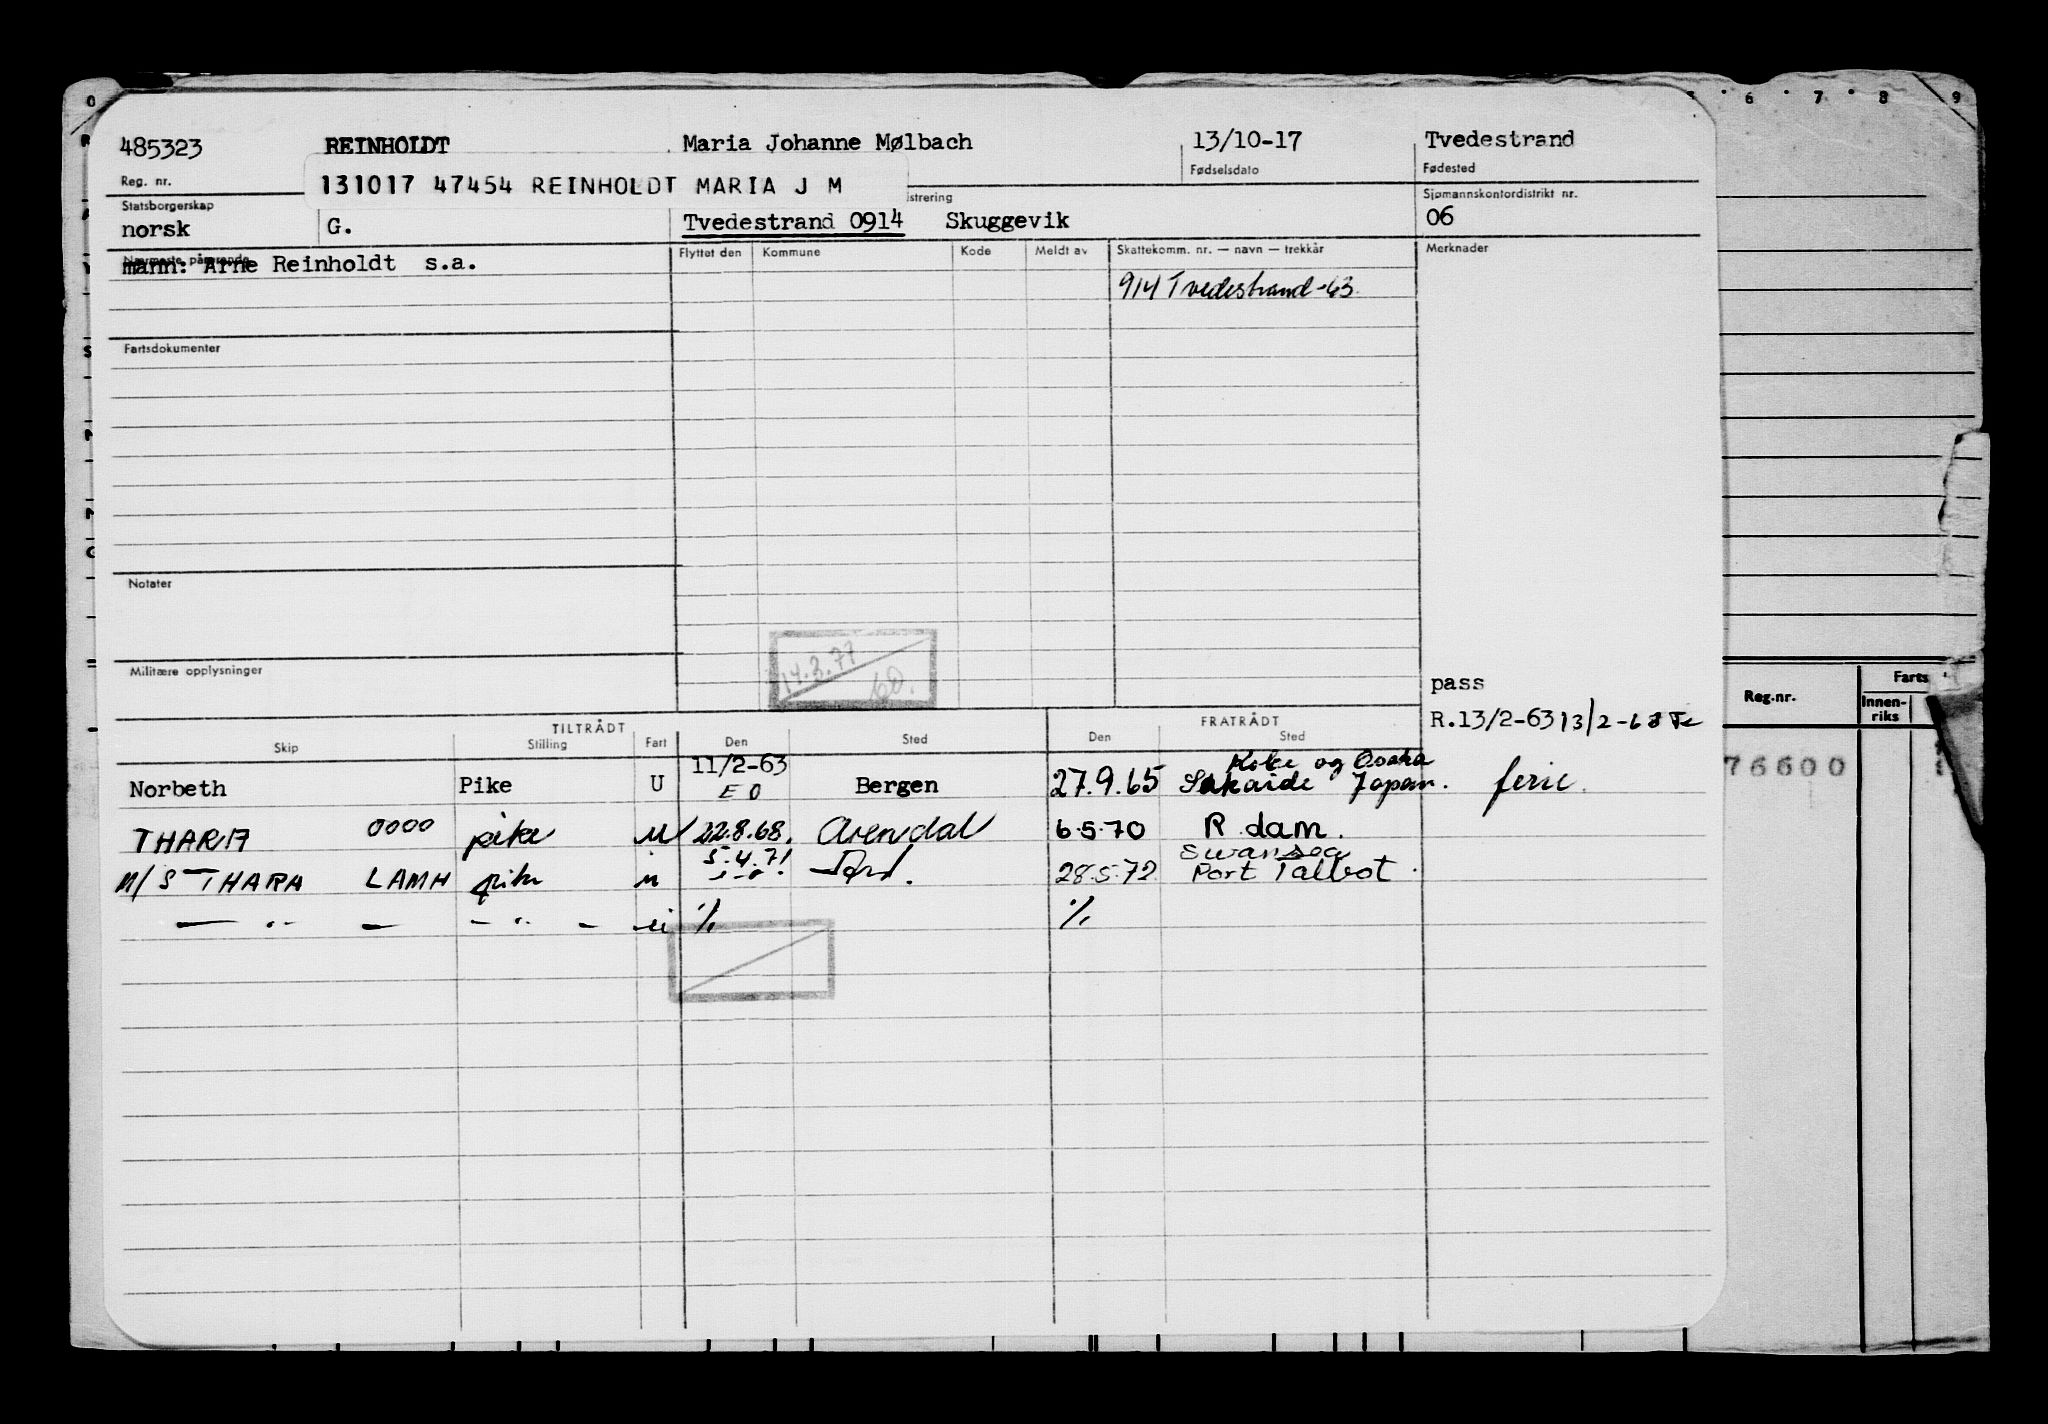 485323 REINHOLDT Maria Johanne Mølbach 13/10-17 Tvedestrand
Reg. nr. Fødselsdato Fødested
131017 47454 REINHOLDT MARIA J M
Statsborgerskap istrering Sjømannskontordistrikt nr.
norsk G. Tvedestrand 0914 Skuggevik 06
Nærmeste pårørende Flyttet den Kommune Kode Meldt av Skattekomm. nr. — navn — trekkår Merknader
mann: Arne Reinholdt s.a.
914 Tvedestrand -63
Fartsdokumenter
Notater
14.3.77
Militære opplysninger
pass
R.13/2-63 13/2-68
TILTRÅDT FRATRÅDT
Skip Stilling Fart Den Sted Den Sted
Norbeth Pike U 11/2-63 Bergen 27.9.65 Kobe og Osaka
E O Japan. ferie.
THARA 0000 pike U 22.8.68. Arendal 6.5.70 R.dam.
M/S THARA LAMH pike u 5.4.71 28.5.72 Swansea
Port Talbot.
— " — — " — u % %
6 7 8 9
Reg.nr. Farts
Innen-
riks
76600